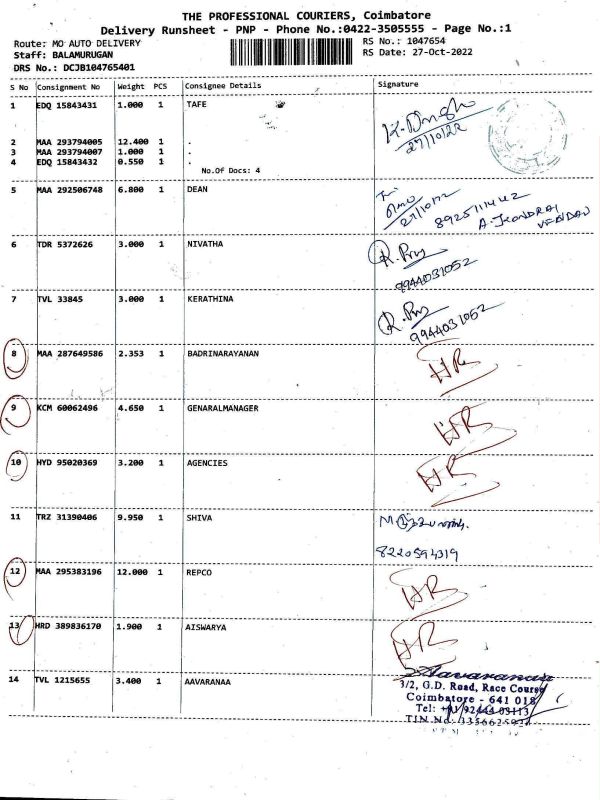 THE PROFESSIONAL COURIERS, Coimbatore
Delivery Runsheet - PNP - Phone No.:0422-3505555 - Page No.:1
Route: MO AUTO DELIVERY
RS No.: 1047654
Staff: BALAMURUGAN
RS Date: 27-Oct-2022
DRS No.: DCJB104765401
S No Consignment No Weight PCS Consignee Details Signature
1 EDQ 15843431 1.000 1 TAFE
27/10/22
2 MAA 293794005 12.400 1 .
3 MAA 293794007 1.000 1 .
4 EDQ 15843432 0.550 1 .
No.Of Docs: 4
5 MAA 292506748 6.800 1 DEAN
27/10/22
6 TDR 5372626 3.000 1 NIVATHA
9944031052
7 TVL 33845 3.000 1 KERATHINA
9944031052
8 MAA 287649586 2.353 1 BADRINARAYANAN
HR
9 KCM 60062496 4.650 1 GENARALMANAGER
HR
10 HYD 95020369 3.200 1 AGENCIES
HR
11 TRZ 31390406 9.950 1 SHIVA
8220594319
12 MAA 295383196 12.000 1 REPCO
HR
13 HRD 389836170 1.900 1 AISWARYA
HR
14 TVL 1215655 3.400 1 AAVARANAA
Aavaranaa
3/2, G.D. Road, Race Course
Coimbatore - 641 018
Tel: +91 92444 03113
TIN No.